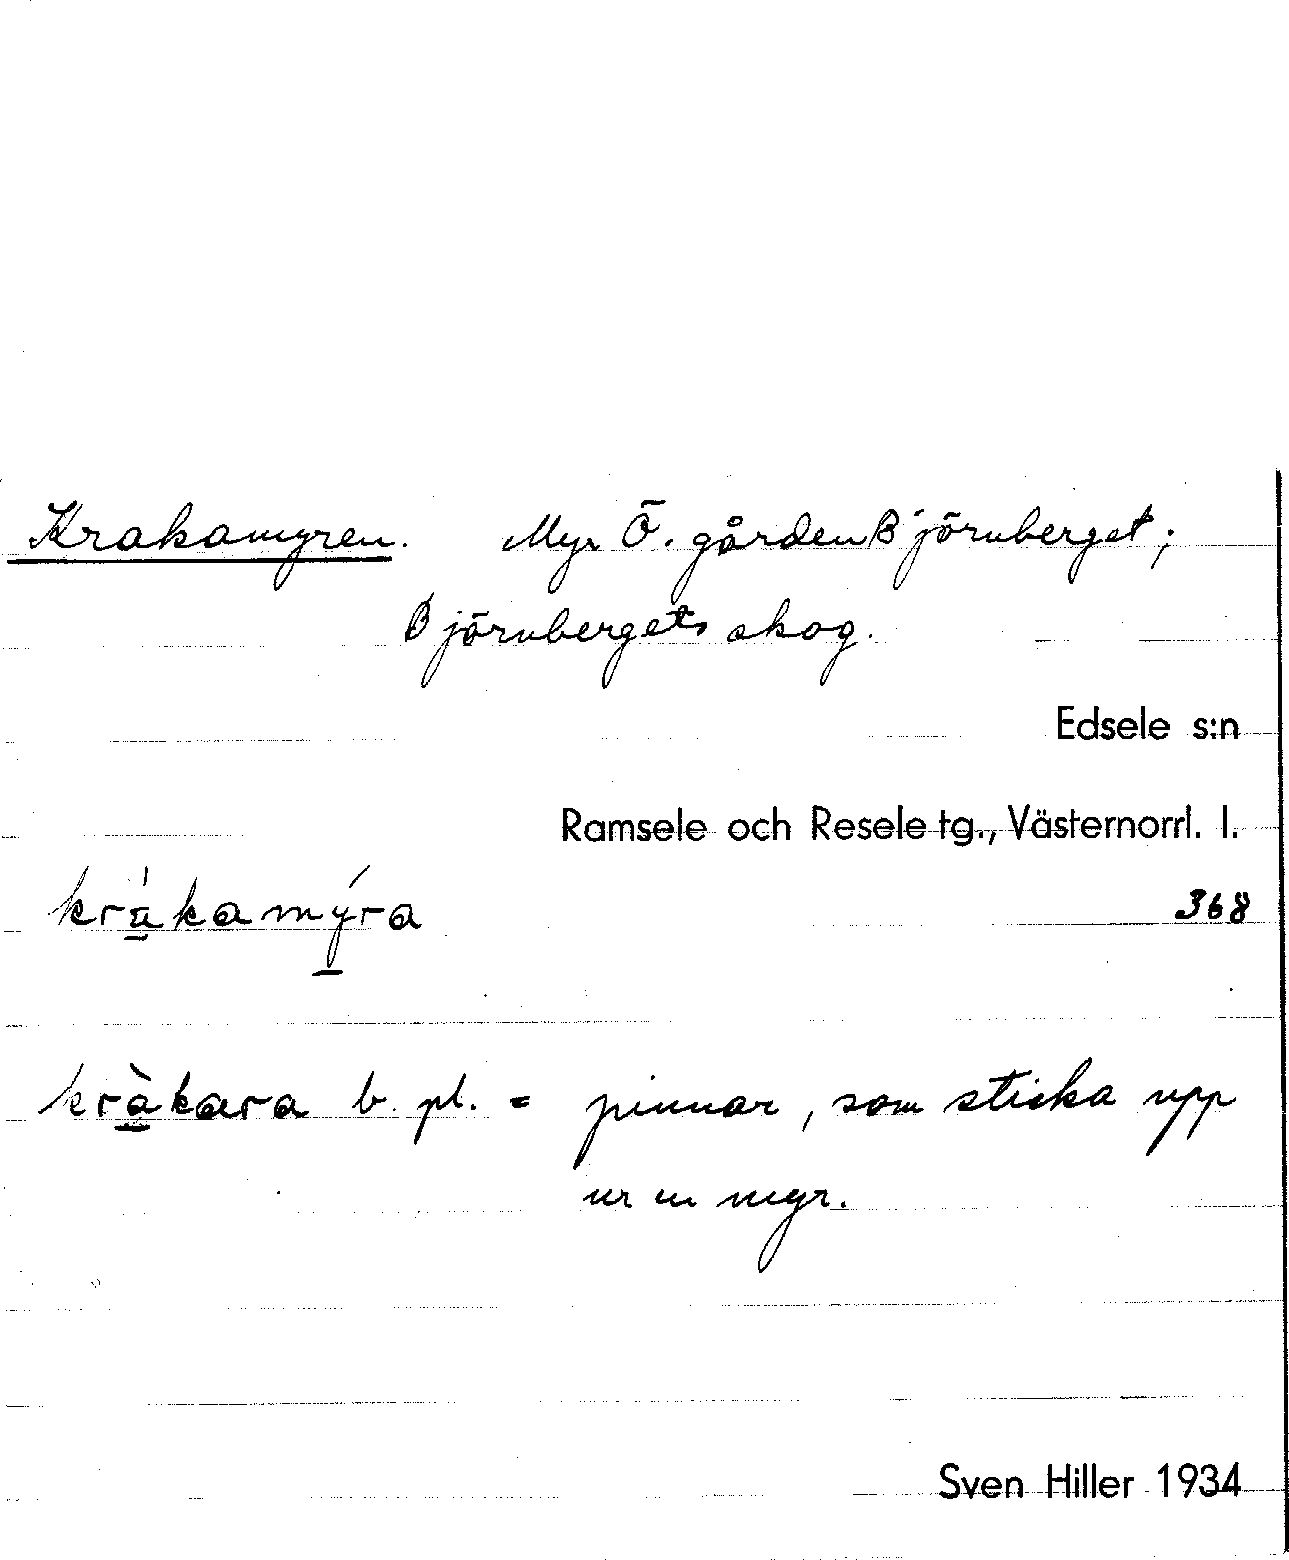 Krakamyren. Myr Ö. gården Björnberget;
Björnbergets skog.
Edsele s:n
Ramsele och Resele tg., Västernorrl. l.
krákamýra 368
kràkara b. pl. = pinnar, som sticka upp
ur en myr.
Sven Hiller 1934